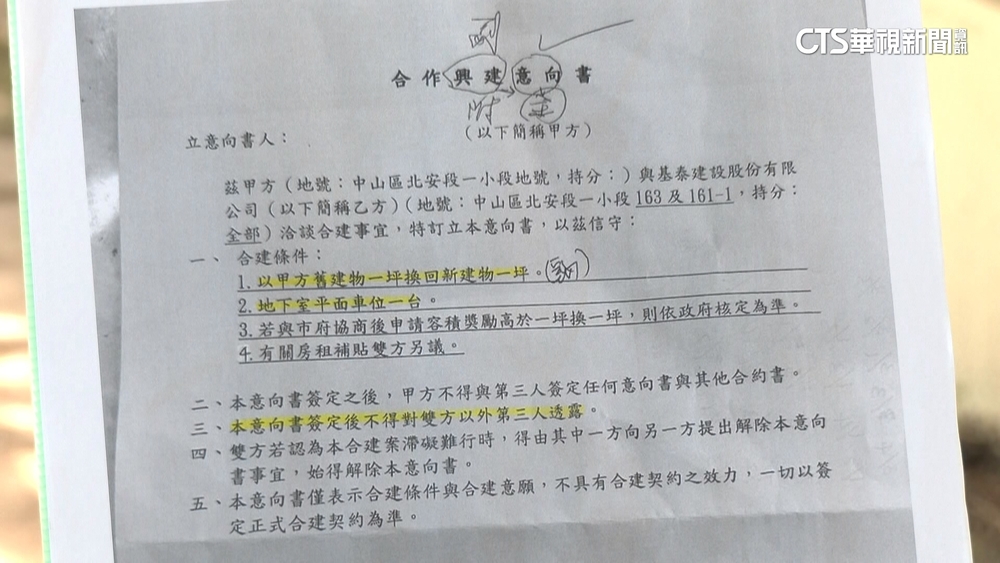 CTS華視新聞資訊
合作興建意向書
附
(以下簡稱甲方)
立意向書人：
茲甲方(地號：中山區北安段一小段地號，持分：)與基泰建設股份有限
公司(以下簡稱乙方)(地號：中山區北安段一小段 163 及 161-1，持分：
全部)洽談合建事宜，特訂立本意向書，以茲信守：
一、 合建條件：
1. 以甲方舊建物一坪換回新建物一坪。
2. 地下室平面車位一台。
3. 若與市府協商後申請容積獎勵高於一坪換一坪，則依政府核定為準。
4. 有關房租補貼雙方另議。
二、本意向書簽定之後，甲方不得與第三人簽定任何意向書與其他合約書。
三、本意向書簽定後不得對雙方以外第三人透露。
四、雙方若認為本合建案滯礙難行時，得由其中一方向另一方提出解除本意向
書事宜，始得解除本意向書。
五、本意向書僅表示合建條件與合建意願，不具有合建契約之效力，一切以簽
定正式合建契約為準。